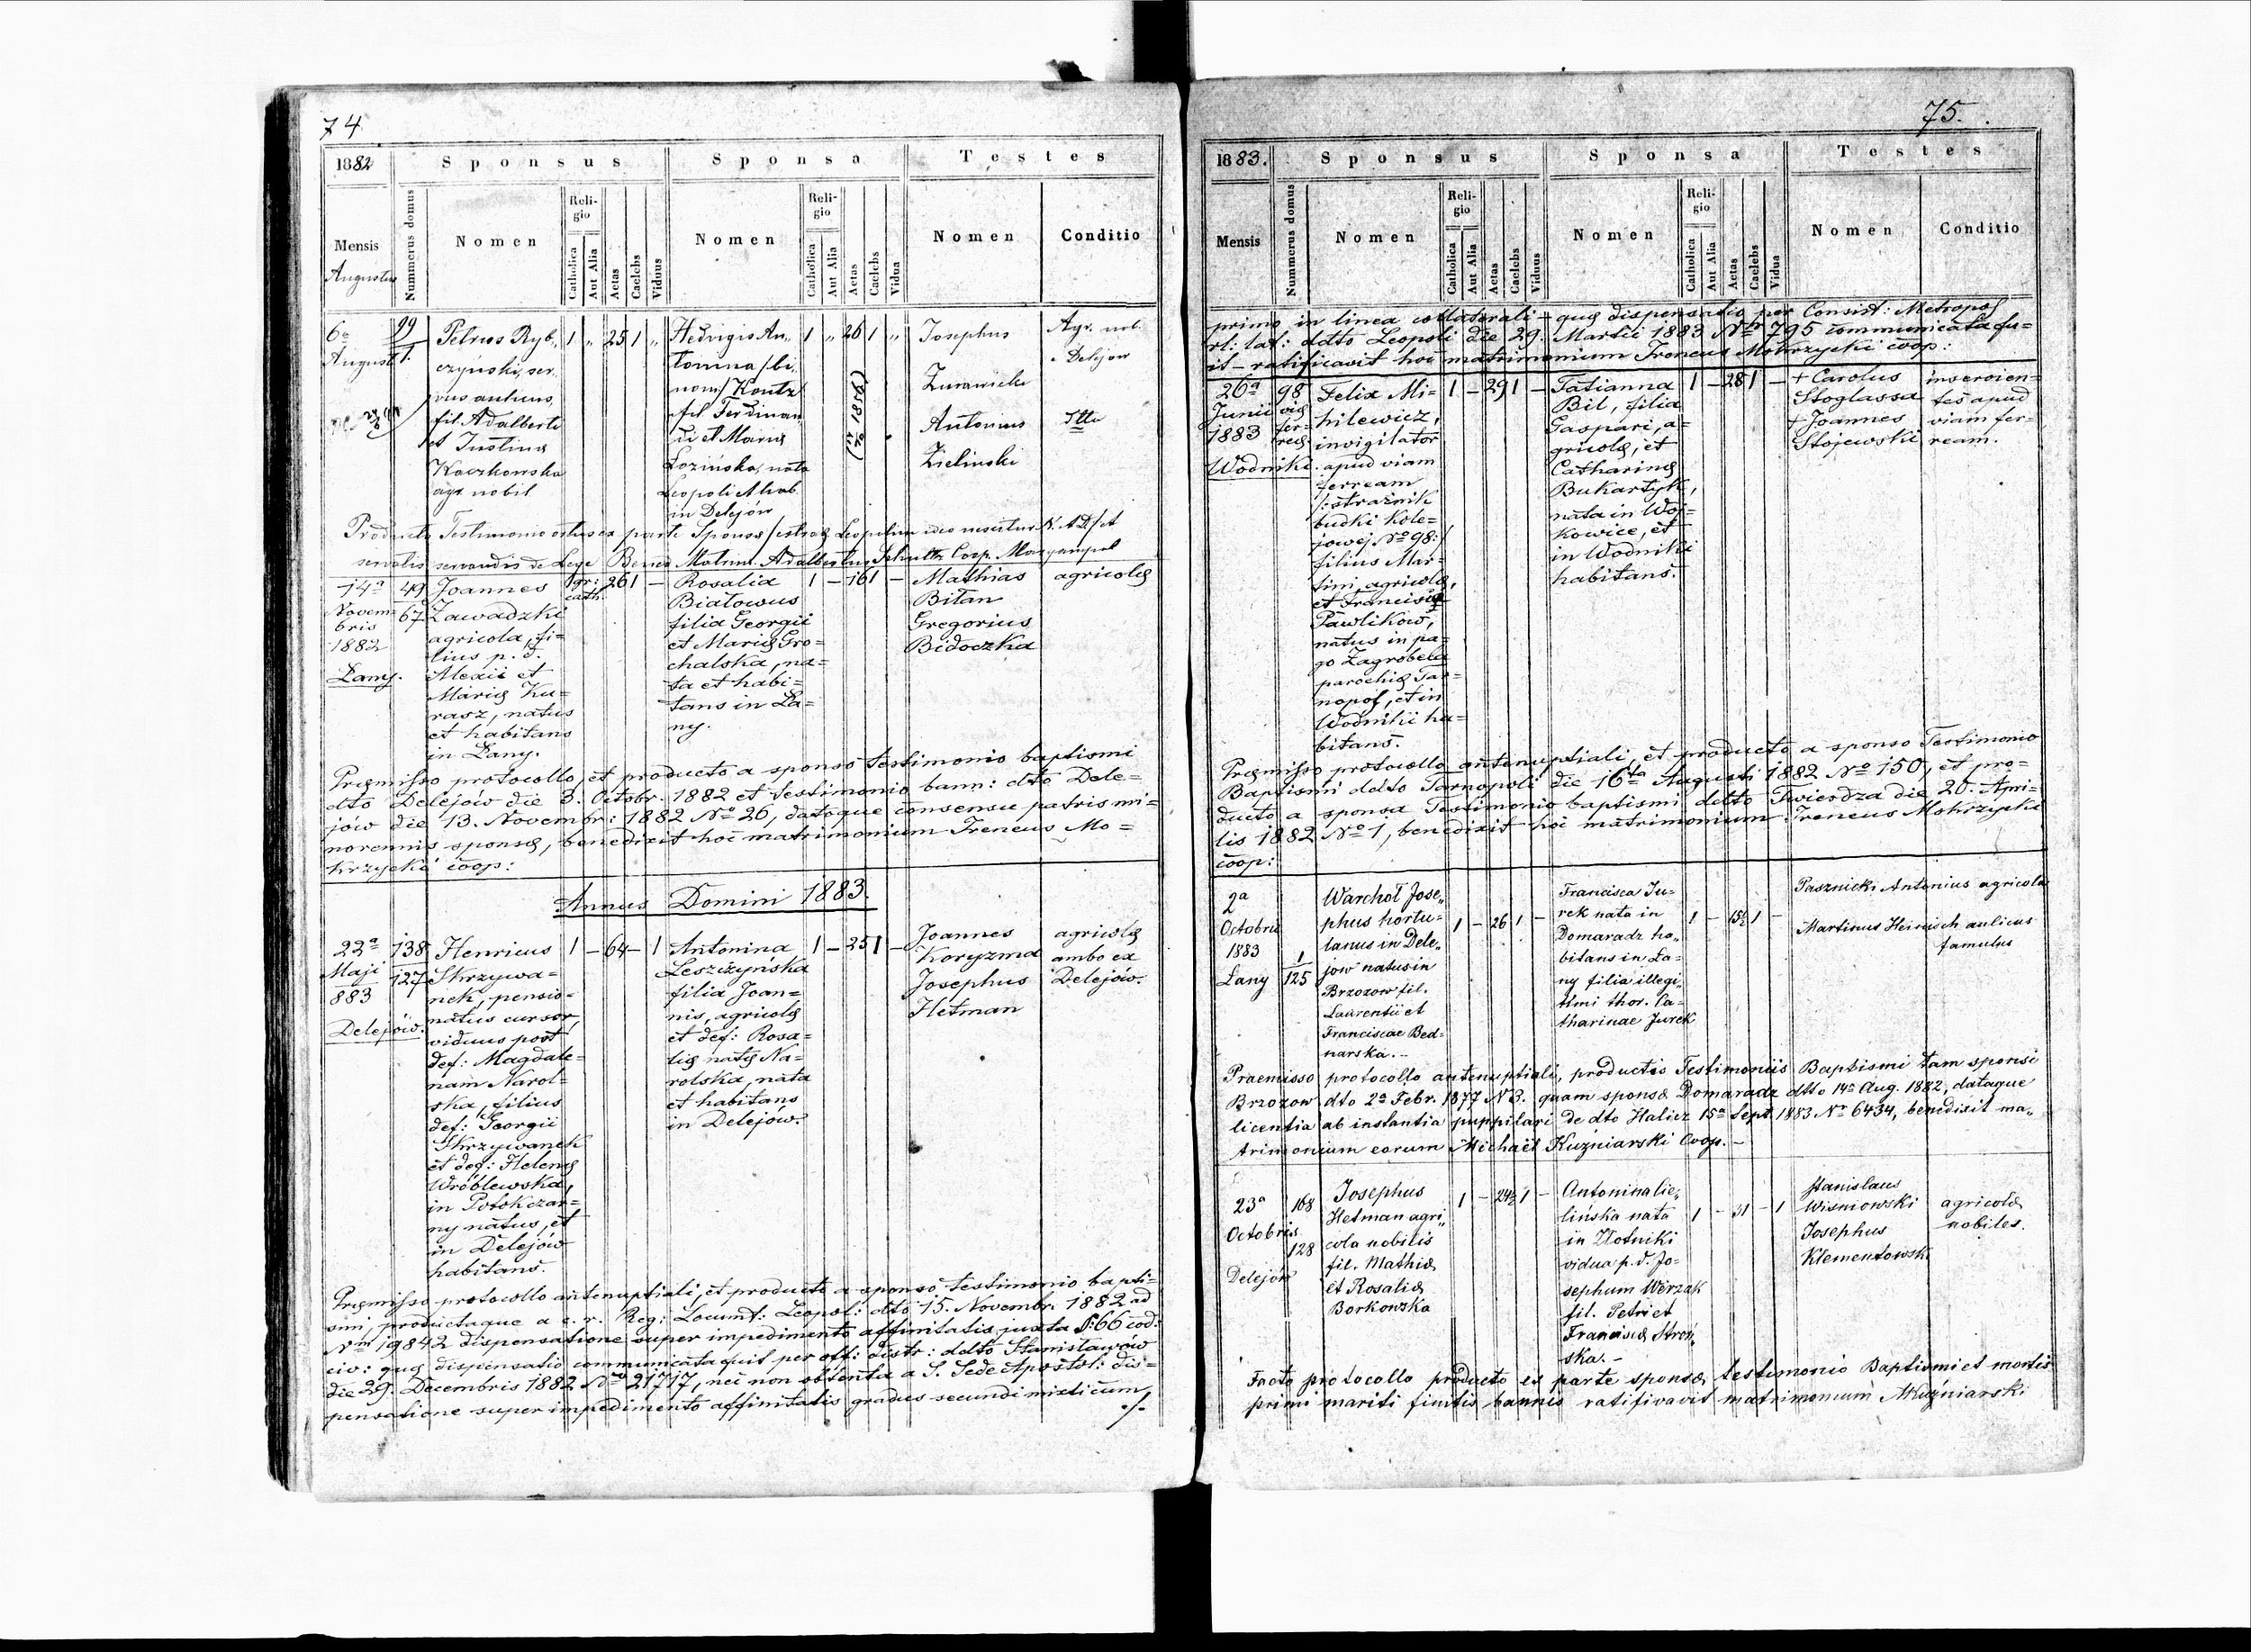 74
1882
Sponsus
Sponsa
Testes
Mensis
Nummerus domus
Nomen
Religio
Catholica
Aut Alia
Aetas
Caelebs
Viduus
Nomen
Religio
Catholica
Aut Alia
Aetas
Caelebs
Vidua
Nomen
Conditio
Augustus
6a
August
99
1.
Petrus Ryb„
czyński, ser„
vus aulicus,
fil. Adalberti
et Justina
Kaczkowska
agr. nobil
1 „ 25 1 „
Hedvigis An„
tonina /bi„
nom/ Kontz
fil Ferdinan
di et Maria
Łozińska, nata
Leopoli & hab.
in Delejów
1 „ 26 1 „
Josephus
Żurawicki
Antonius
Zieliński
Agr. nob.
Delejow
Itto
Producto Testimonio ortus ex parte Sponsa
servatis servandis de Lege Bened Matrim. Adalbertus Schultz Coop. Maryampol
14a
Novem=
bris
1882
Łany.
49
67
Joannes
Zawadzki
agricola, fi=
lius p. d.
Alexii et
Mariæ Ku=
rasz, natus
et habitans
in Łany.
1 gr:
cath.
26 1 —
Rosalia
Białowus
filia Georgii
et Mariæ Gro=
chalska, na=
ta et habi=
tans in Ła=
ny.
1 — 16 1 —
Mathias
Bitan
Gregorius
Bidoczka
agricolæ
Præmisso protocollo, et producto a sponso testimonio baptismi
dto Delejów die 3. Octobr. 1882 et testimonio bann: dto Dele=
jów die 13. Novembr: 1882 No 26, datoque consensu patris mi=
norennis sponsæ, benedixit hoc matrimonium Ireneus Mo=
krzycki coop:
Annus Domini 1883.
22a
Maji
883
Delejów.
138
127
Henricus
Skrzywa=
nek, pensio=
natus cursor,
viduus post
def: Magdale=
nam Narol=
ska, filius
def: Georgii
Skrzywanek
et def: Helenæ
Wróblewska,
in Potok czar=
ny natus, et
in Delejów
habitans.
1 — 64 — 1
Antonina
Leszczyńska
filia Joan=
nis, agricolæ
et def: Rosa=
liæ natæ Na=
rolska, nata
et habitans
in Delejów.
1 — 25 1 —
Joannes
Koryzma
Josephus
Hetman
agricolæ
ambo ex
Delejów.
Præmisso protocollo antenuptiali, et producto a sponso testimonio bapti=
smi, productaque a c. r. Reg: Locumt: Leopol: dto 15. Novembr. 1882 ad
Nm 19842 dispensatione super impedimento affinitatis juxta §: 66 cod:
civ: quæ dispensatio communicata fuit per off: distr: ddto Stanisławów
die 29. Decembris 1882 No 21717, nec non obtenta a S. Sede Apostol: dis=
pensatione super impedimento affinitatis gradus secundi mixti cum
./.
75.
1883.
Sponsus
Sponsa
Testes
Mensis
Nummerus domus
Nomen
Religio
Catholica
Aut Alia
Aetas
Caelebs
Viduus
Nomen
Religio
Catholica
Aut Alia
Aetas
Caelebs
Vidua
Nomen
Conditio
primo in linea collaterali — quæ dispensatio per Consist: Metropol
rl: lat: ddto Leopoli die 29. Martii 1883 Nro 795 communicata fu=
it — ratificavit hoc matrimonium Ireneus Mokrzycki coop:
26a
Junii
1883
Wodniki.
98
viæ
fer=
reæ
Felix Mi=
hilewicz,
invigilator
apud viam
ferream
/: strażnik
budki kole=
jowej No 98:/
filius Mar=
tini agricolæ,
et Franciscæ
Pawlików,
natus in pa=
go Zagrobela
parochiæ Tar=
nopol, et in
Wodniki ha=
bitans.
1 — 29 1 —
Tatianna
Bil, filia
Gaspari, a=
gricolæ, et
Catharinæ
Bukartyk,
nata in Woj=
kowice, et
in Wodniki
habitans.
1 — 28 1 —
+ Carolus
Stoglassa
+ Joannes
Stojewski
inservien=
tes apud
viam fer=
ream.
Præmisso protocollo antenuptiali, et producto a sponso Testimonio
Baptismi ddto Tarnopoli die 16ta Augusti 1882 No 150, et pro=
ducto a sponsa Testimonio baptismi ddto Twierdza die 20. Apri=
lis 1882 No 1, benedixit hoc matrimonium Ireneus Mokrzycki
coop:
2a
Octobris
1883
Łany
1
125
Warchoł Jose„
phus hortu=
lanus in Dele„
jow natus in
Brzozow fil.
Laurentii et
Franciscae Bed=
narska. —
1 — 26 1 —
Francisca Ju=
rek nata in
Domaradz ha„
bitans in Ła=
ny filia illegi„
timi thor. Ca=
tharinae Jurek
1 — 15½ 1 —
Pasznicki Antonius agricola
Martinus Heinisch aulicus
famulus
Praemisso protocollo antenuptiali, productis Testimoniis Baptismi tam sponsi
Brzozow dto 2a Febr. 1877 N 3. quam sponsæ Domaradz dtto 14a Aug. 1882, dataque
licentia ab instantia puppilari de dto Halicz 15a Sept 1883 No 6434, benedixit ma„
trimonium eorum Michaël Kuzniarski Coop. —
23a
Octobris
Delejów
168
128
Josephus
Hetman agri„
cola nobilis
fil. Mathiæ
et Rosaliæ
Borkowska
1 — 24½ 1 —
Antonina Zie„
lińska nata
in Złotniki
vidua p. d. Jo=
sephum Werzak
fil. Petri et
Franciscæ Stroń„
ska. —
1 — 31 — 1
Stanislaus
Wisniowski
Josephus
Klementowski
agricolæ
nobiles.
Facto protocollo producto ex parte sponsæ testimonio Baptismi et mortis
primi mariti finitis bannis ratifivavit matrimonium MKuźniarski